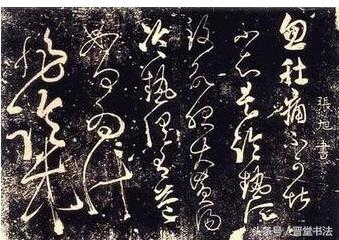 張旭書
忽肚痛不可堪
不知是冷熱所
致欲服大黃湯
冷熱俱有益
如何為計
非臨床
头条号 / 晋堂书法